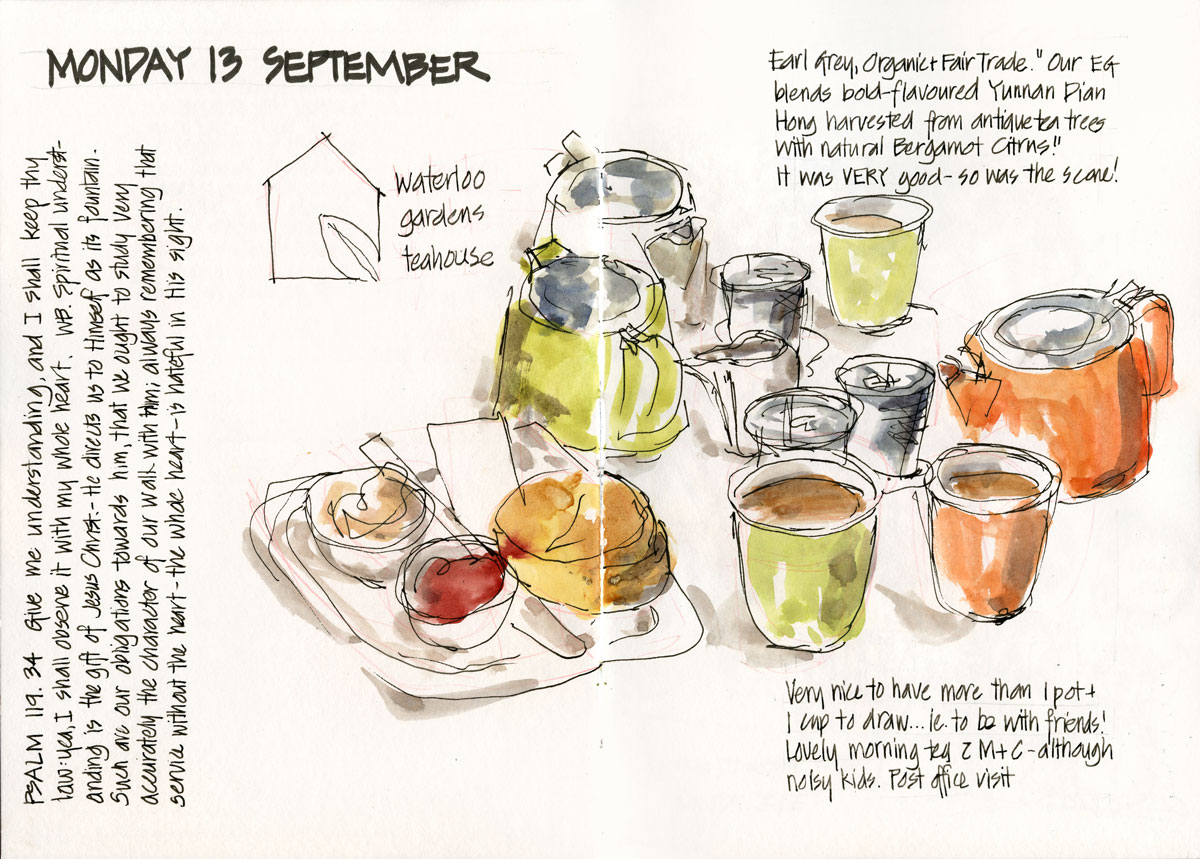 MONDAY 13 SEPTEMBER
PSALM 119. 34 Give me understanding, and I shall keep thy
law: yea, I shall observe it with my whole heart. WB. Spiritual underst-
anding is the gift of Jesus Christ - He directs us to Himself as its fountain.
Such are our obligations towards him, that we ought to study very
accurately the character of our walk with him; always remembering that
service without the heart - the whole heart - is hateful in His sight.
waterloo
gardens
teahouse
Earl Grey, Organic + Fair Trade. "Our EG
blends bold-flavoured Yunnan Dian
Hong harvested from antique tea trees
with natural Bergamot Citrus!"
It was VERY good - so was the scone!
Very nice to have more than 1 pot +
1 cup to draw... ie. to be with friends!
Lovely morning tea M+C - although
noisy kids. Post office visit